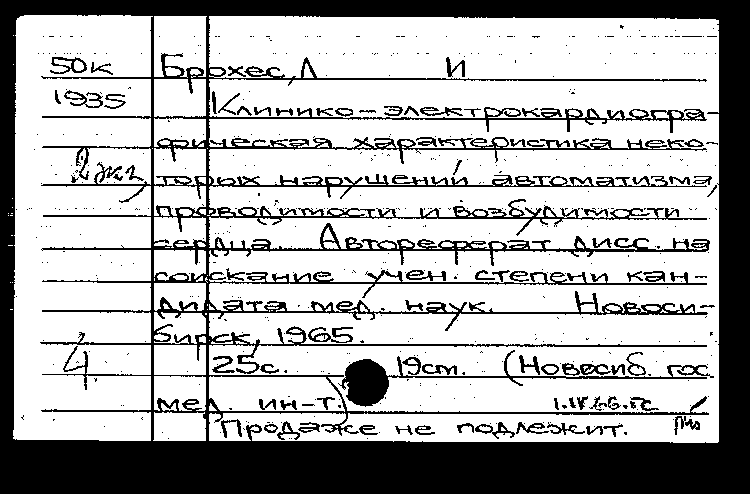 50к Брохес, Л И
1935 Клинико-электрокардиогра-
фическая характеристика неко-
2 экз, торых нарушений автоматизма,
проводимости и возбудимости
сердца. Автореферат дисс. на
соискание учен. степени кан-
дидата мед. наук. Новоси-
бирск, 1965.
4. 25с. 19ст. (Новосиб. гос
мед. ин-т.)
Продаже не подлежит.